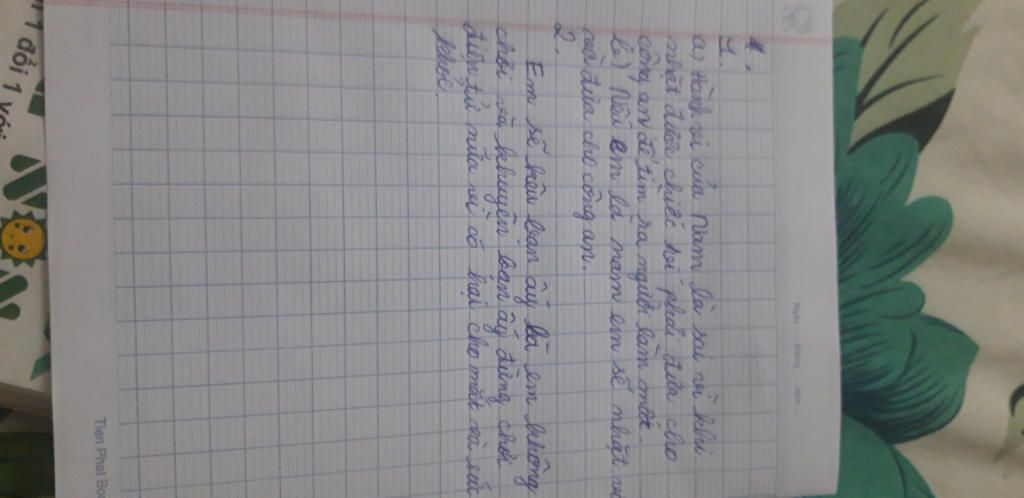 Ngày tháng năm
1.
a) Hành vi của Nam là sai vì khi
nhặt được chiếc ví phải đưa cho
công an để tìm ra người làm mất.
b) Nếu em là nam em sẽ nhặt
rồi đưa cho công an.
2.
Em sẽ bạn ấy là em không
chơi và khuyên bạn ấy đừng chơi
điện tử nữa vì có hại cho mắt và sức
khoẻ.
1 đổi 1